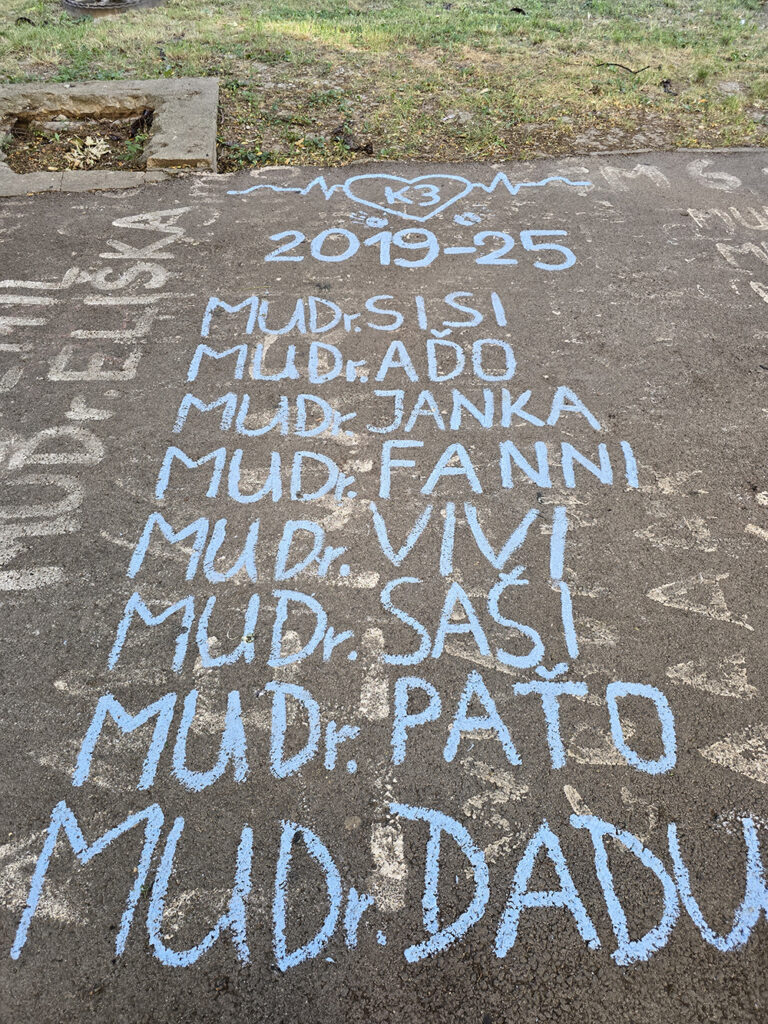 K3
2019-25
MUDr. SISI
MUDr. AĎO
MUDr. JANKA
MUDr. FANNI
MUDr. VIVI
MUDr. SAŠI
MUDr. PAŤO
MUDr. DADU
MUDr. ELIŠKA